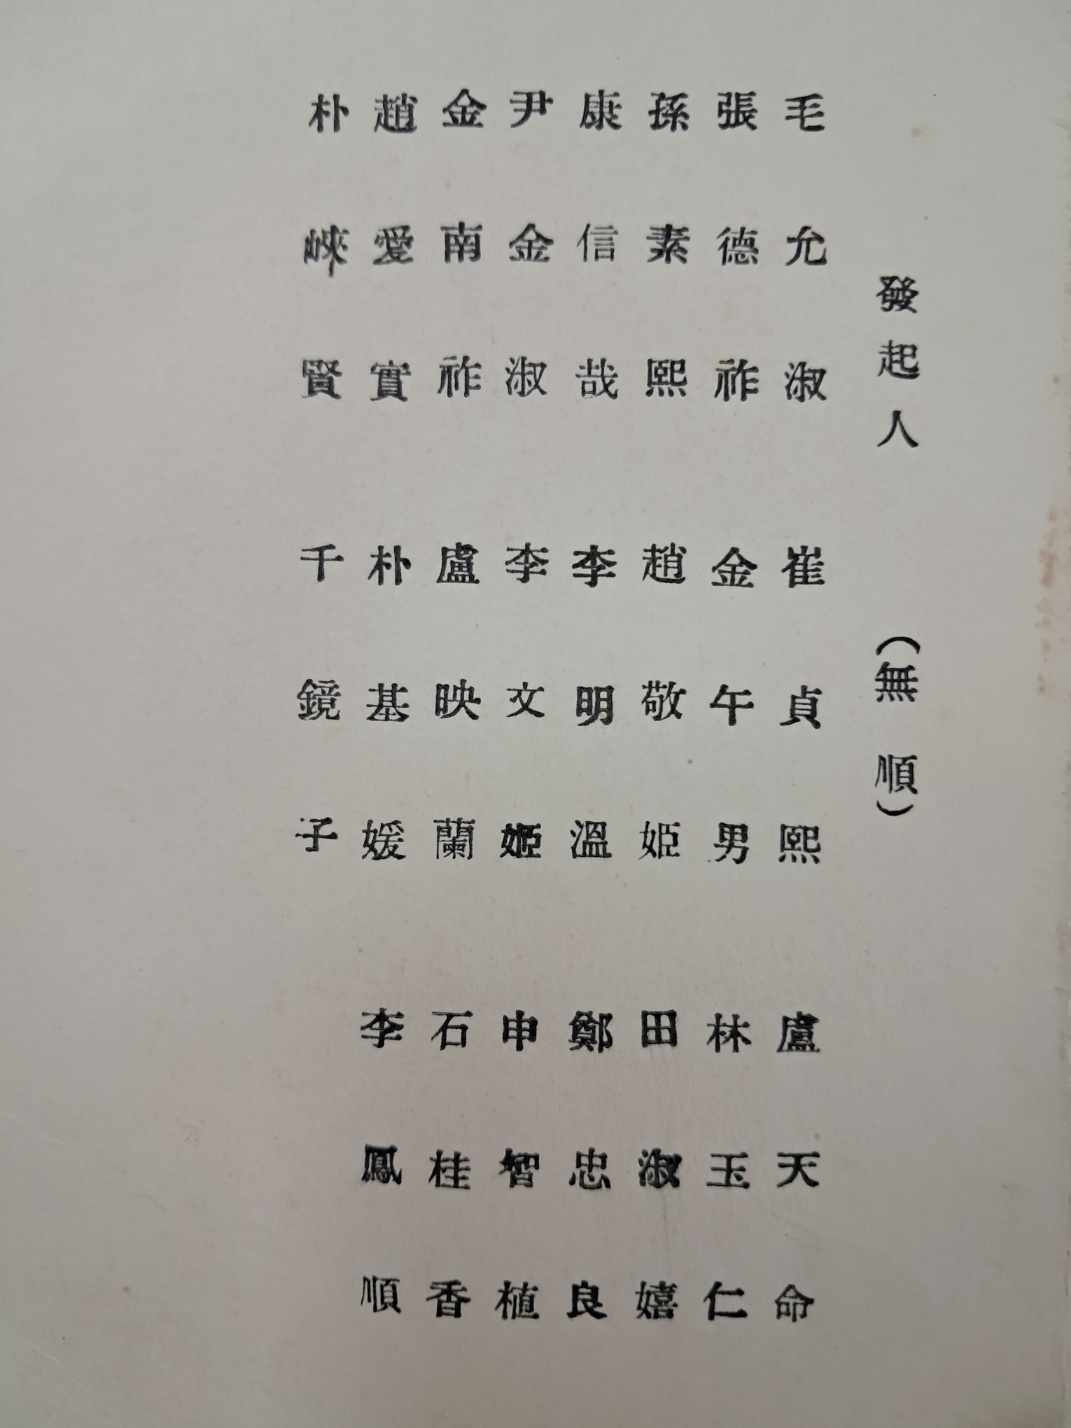 發起人 (無順)
毛允淑 崔貞熙 盧天命
張德祚 金午男 林玉仁
孫素熙 趙敬姬 田淑嬉
康信哉 李明溫 鄭忠良
尹金淑 李文姬 申智植
金南祚 盧映蘭 石桂香
趙愛實 朴基媛 李鳳順
朴峽賢 千鏡子